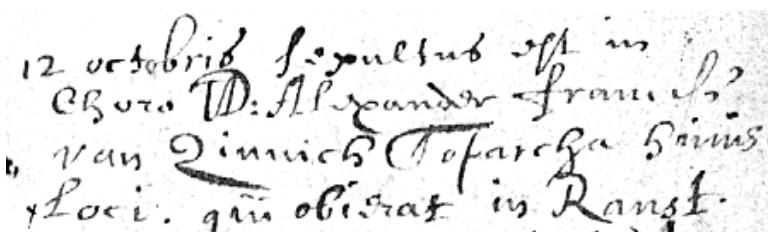 12 octobris sepultus est in
Choro D: Alexander Francis
van Zinnich Toparcha huius
Loci. qui obierat in Ranst.